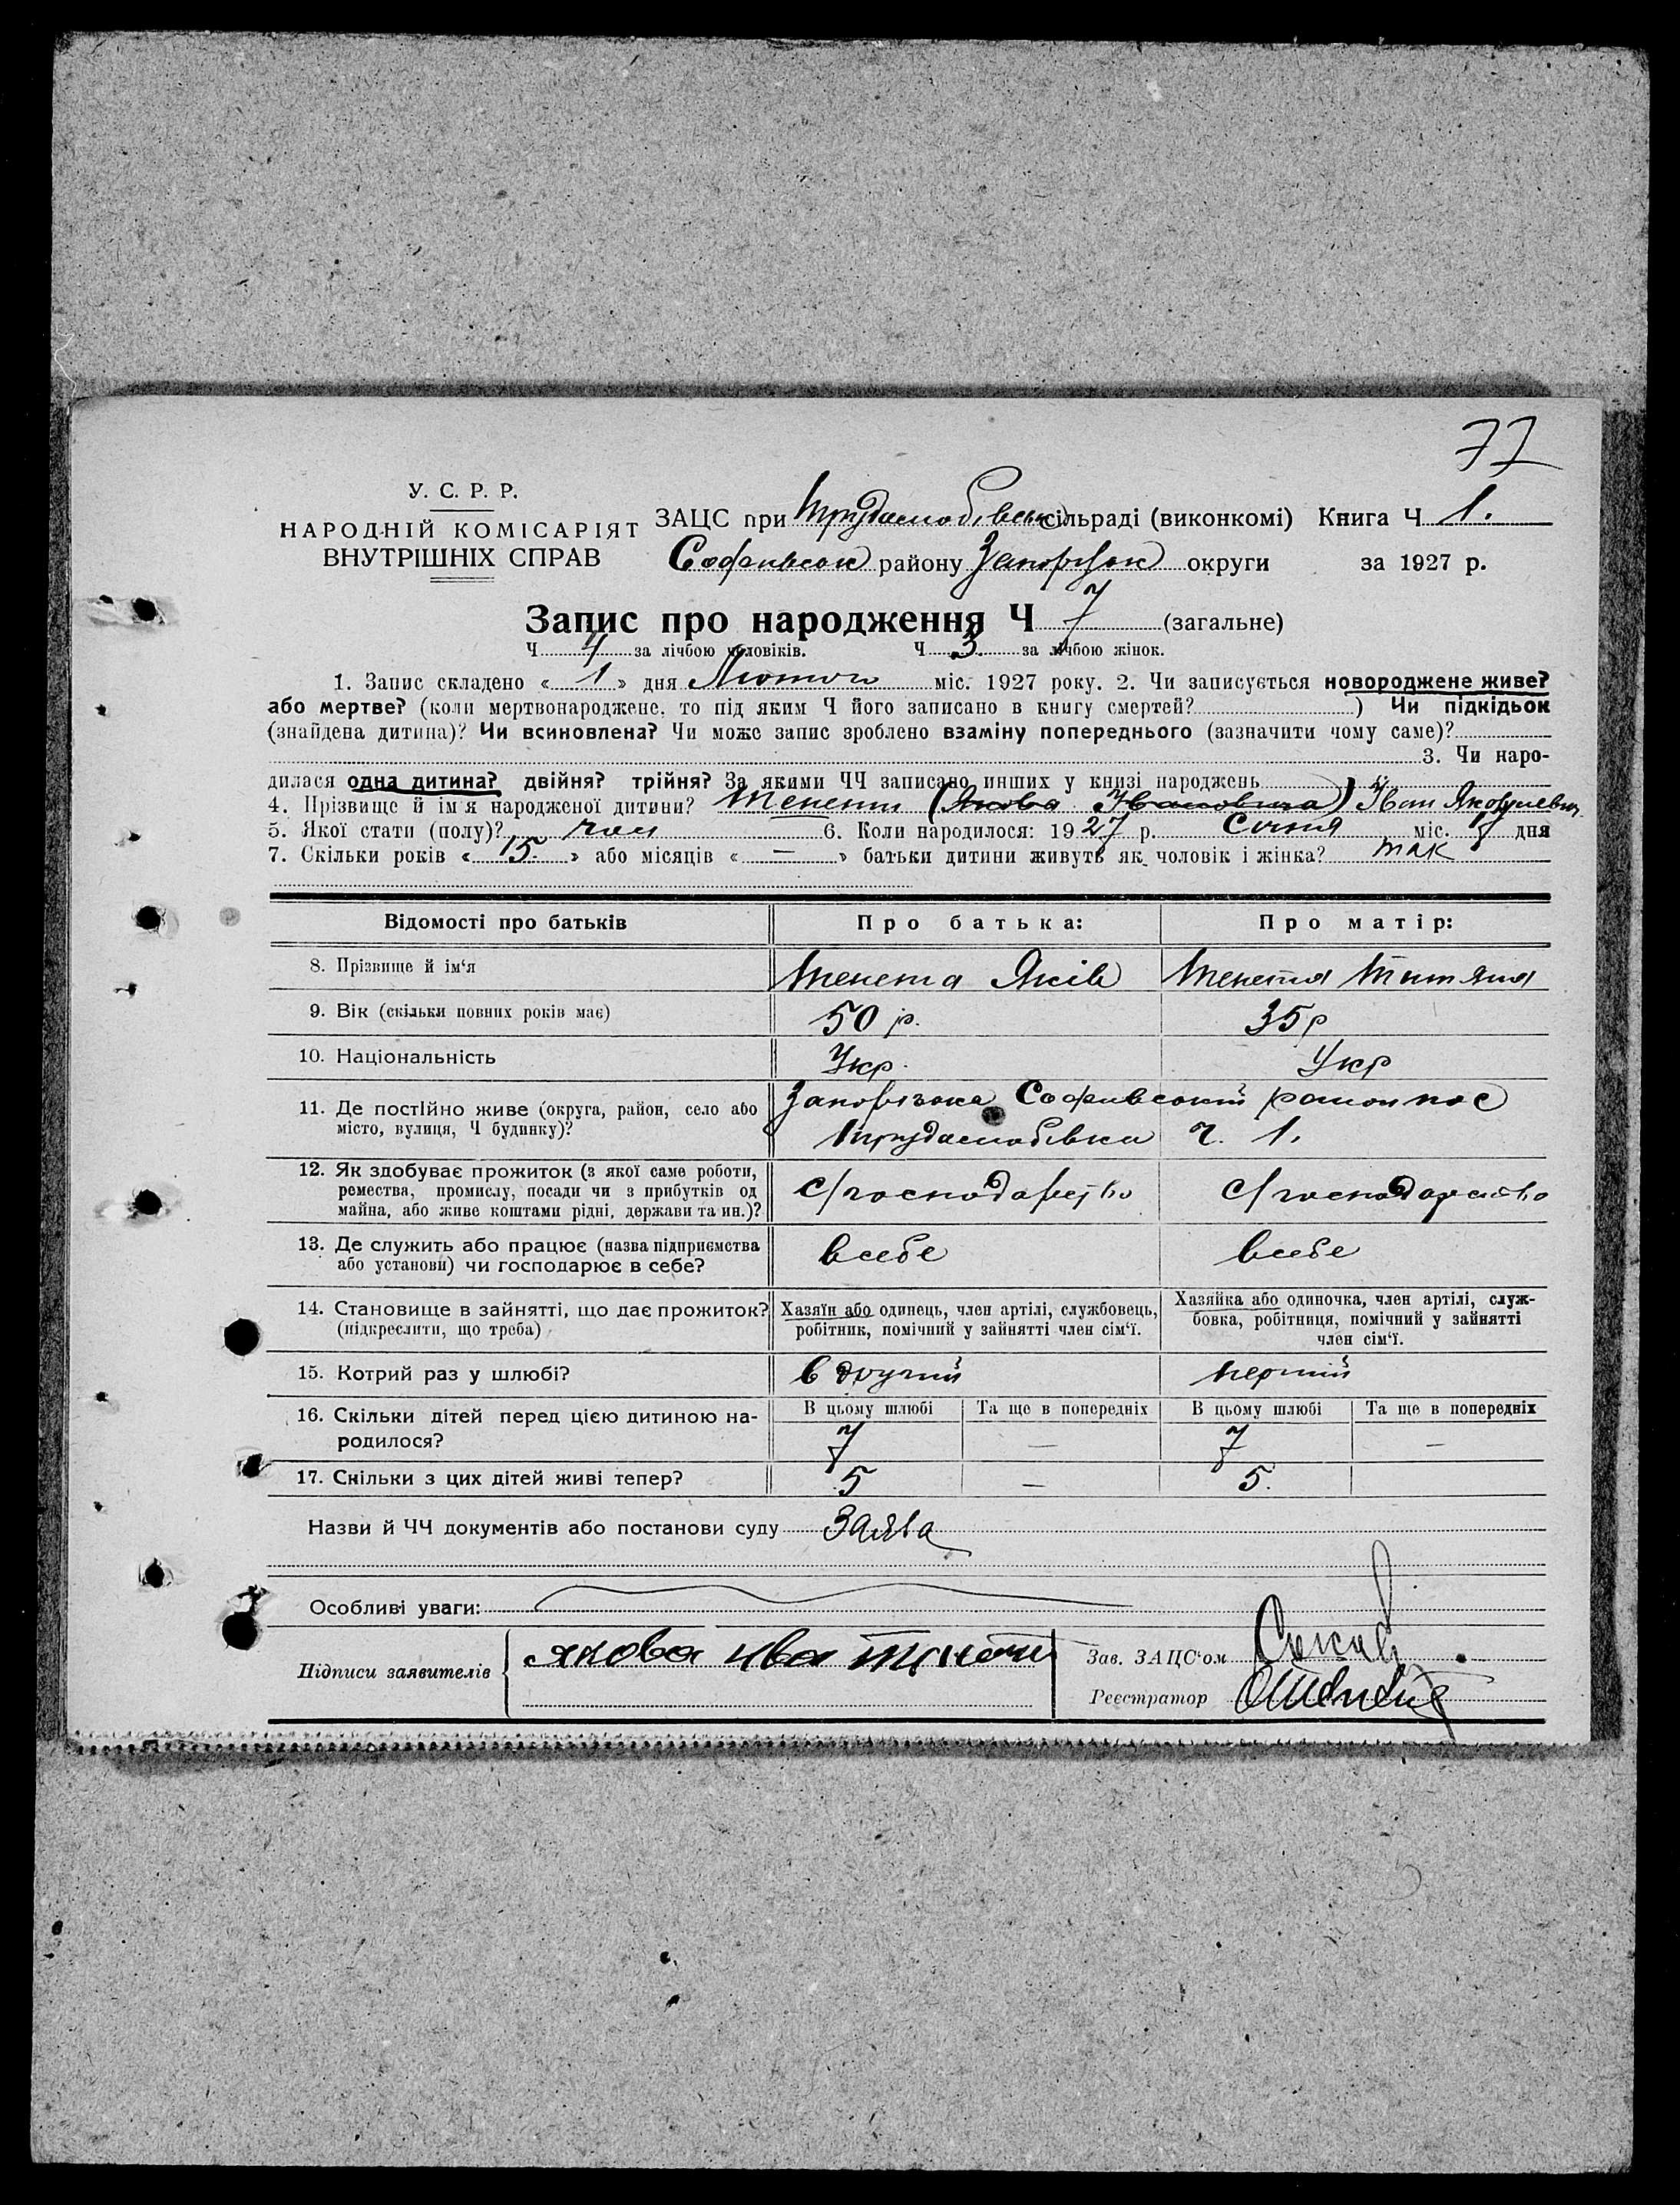 77
У. С. Р. Р.
НАРОДНІЙ КОМІСАРІЯТ
ВНУТРІШНІХ СПРАВ
ЗАЦС при сільраді (виконкомі) Книга Ч 1.
Софиевськ району Запорізьк округи за 1927 р.
Запис про народження Ч 7 (загальне)
Ч 4 за лічбою чоловіків. Ч 3. за лічбою жінок.
1. Запис складено « 1 » дня Лютого міс. 1927 року. 2. Чи записується новороджене живе?
або мертве? (коли мертвонароджене, то під яким Ч його записано в книгу смертей? ) Чи підкідьок
(знайдена дитина)? Чи всиновлена? Чи може запис зроблено взаміну попереднього (зазначити чому саме)?
3. Чи наро-
дилася одна дитина? двійня? трійня? За якими ЧЧ записано инших у книзі народжень
4. Прізвище й ім'я народженої дитини? Тенети (Якова Ивановича) Иван Якович
5. Якої стати (полу)? чол 6. Коли народилося: 1927 р. Січня міс. дня
7. Скільки років « 15. » або місяців « — » батьки дитини живуть як чоловік і жінка? так
Відомості про батьків Про батька: Про матір:
8. Прізвище й ім‘я Тенета Яків Тенетя Титяна
9. Вік (скільки повних років має) 50 р. 35 р
10. Національність Укр. Укр
11. Де постійно живе (округа, район, село або Запорізька Софиевський район пос
місто, вулиця, Ч будинку)? ч. 1.
12. Як здобуває прожиток (з якої саме роботи,
ремества, промислу, посади чи з прибутків од с/господарство с/господарство
майна, або живе коштами рідні, держави та ин.)?
13. Де служить або працює (назва підприємства всебе всебе
або установи) чи господарює в себе?
14. Становище в зайнятті, що дає прожиток? Хазяїн або одинець, член артілі, службовець, Хазяйка або одиночка, член артілі, служ-
(підкреслити, що треба) робітник, помічний у зайнятті член сім‘ї. бовка, робітниця, помічний у зайнятті
член сім‘ї.
15. Котрий раз у шлюбі? в другий перший
16. Скільки дітей перед цією дитиною на- В цьому шлюбі Та ще в попередніх В цьому шлюбі Та ще в попередніх
родилося? 7 — 7 —
17. Скільки з цих дітей живі тепер? 5 — 5.
Назви й ЧЧ документів або постанови суду Заява
Особливі уваги:
Підписи заявителів якова ива тенети Зав. ЗАЦС‘ом
Реєстратор